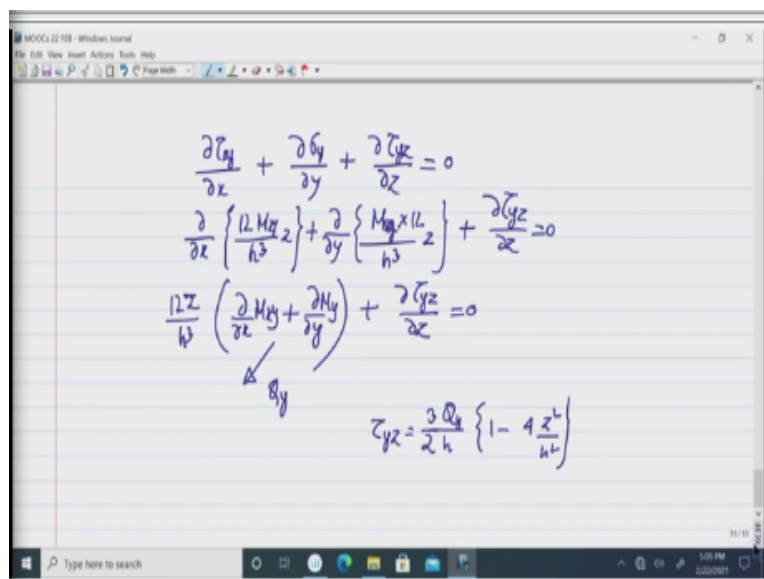 MOOCs 22 FEB - Windows Journal
File Edit View Insert Actions Tools Help
Page Width
∂τxy/∂x + ∂σy/∂y + ∂τyz/∂z = 0
∂/∂x {12 Mxy/h³ z} + ∂/∂y {My × 12/h³ z} + ∂τyz/∂z = 0
12z/h³ (∂/∂x Mxy + ∂My/∂y) + ∂τyz/∂z = 0
Qy
τyz = 3 Qy/2 h {1 - 4 z²/h²}
11/11
Type here to search
5:05 PM
2/22/2021